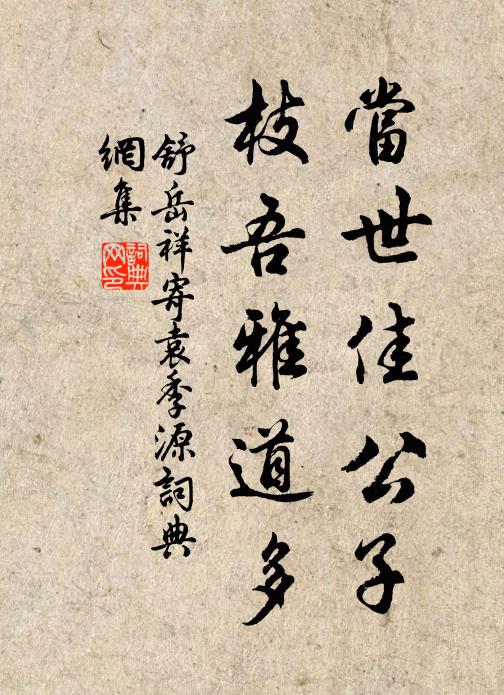 當世佳公子
枝吾雅道多
舒岳祥寄袁季源詞典
網集
詞典
网印